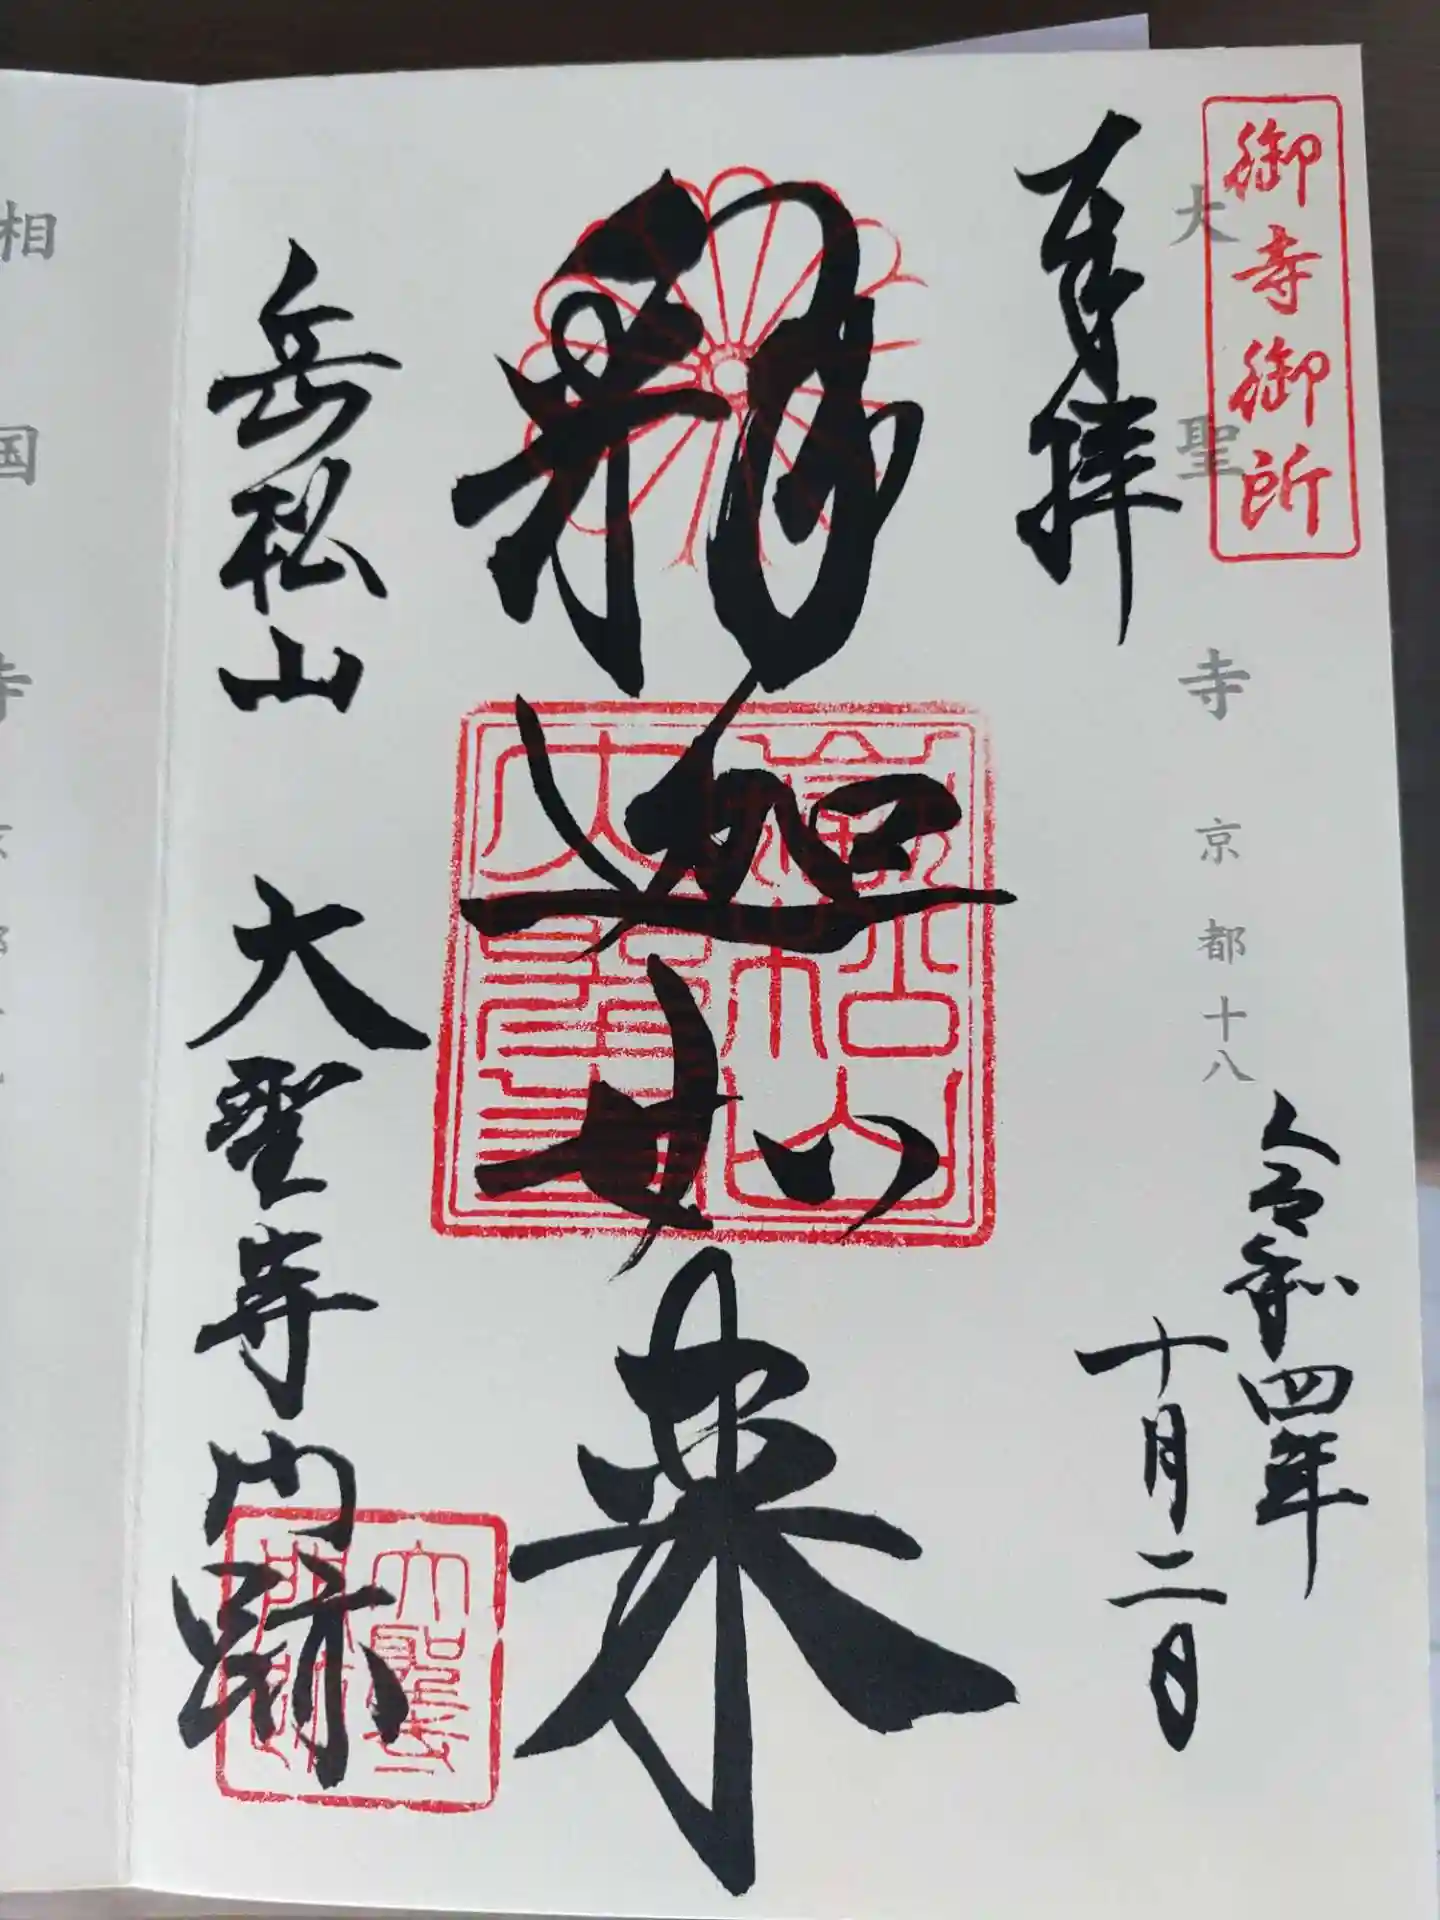 御寺御所
大聖寺 京都十八
奉拝
令和四年
十月二日
釈迦如来
岳松山 大聖寺門跡
相国寺